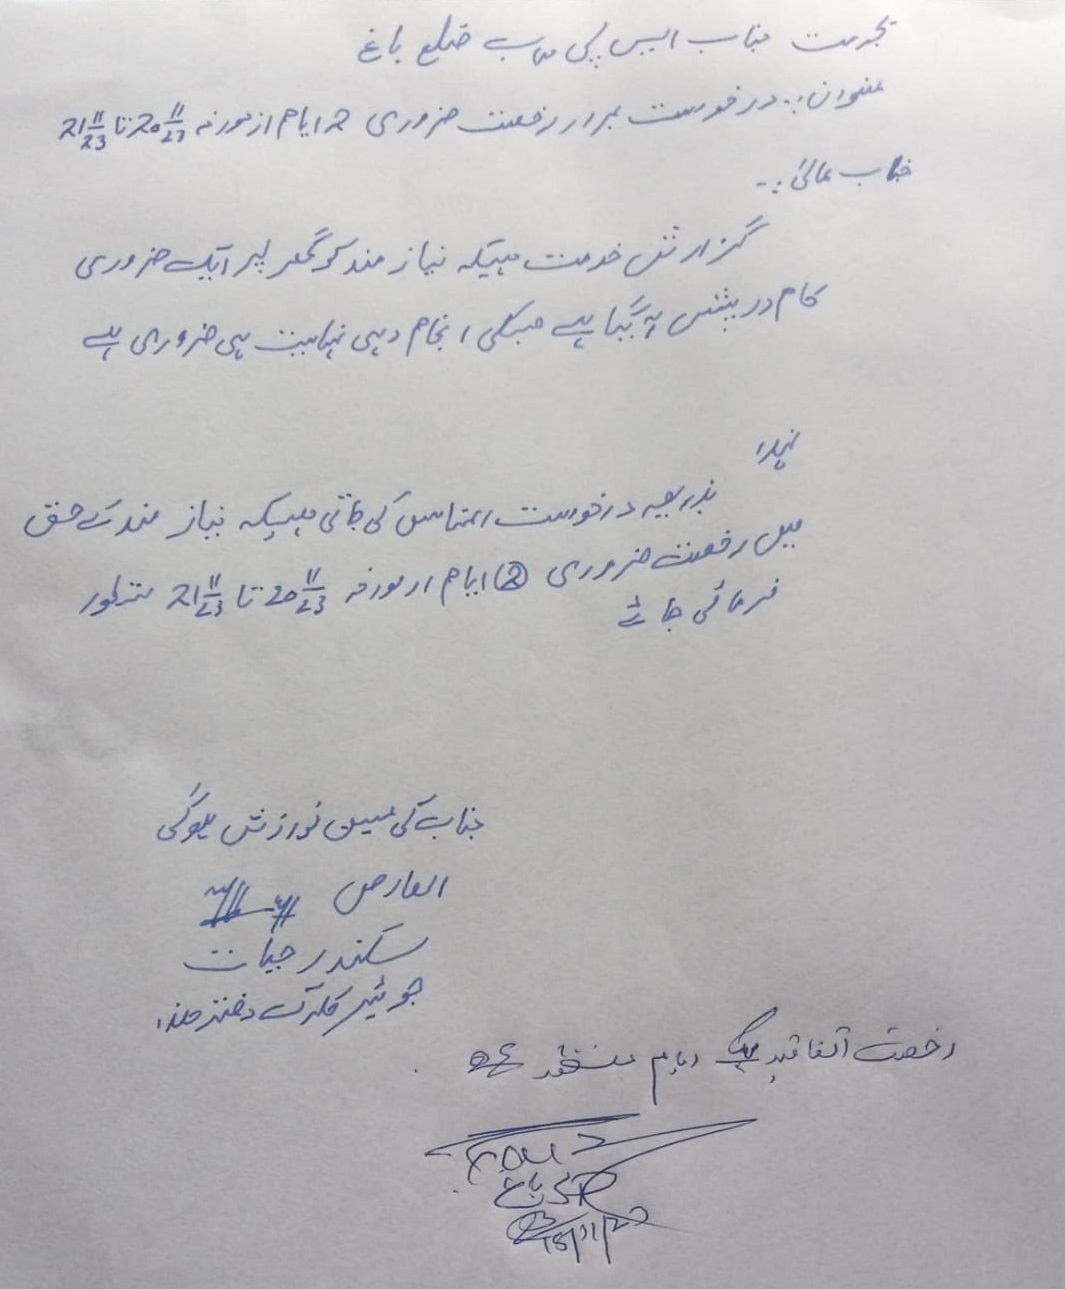 بخدمت جناب ایس پی صاحب ضلع باغ
عنوان:۔ درخوست بمراد رخصت ضروری 2 ایام از مورخہ 20 11/23 تا 21 11/23
جناب عالیٰ:۔
گزارش خدمت ہیکہ نیاز مند کو گھر پر ایک ضروری
کام در پیش آ گیا ہے جسکی انجام دہی نہایت ہی ضروری ہے
لہذا
بذریعہ درخوست التماس کی جاتی ہیکہ نیاز مند کے حق
میں رخصت ضروری (2) ایام از مورخہ 20 11/23 تا 21 11/23 منظور
فرمائی جائے
جناب کی عین نوازش ہوگی
العارض
سکندر حیات
جونیئر کلرک دفتر ھذا
رخصت اتفاقیہ ایام منظور
باغ